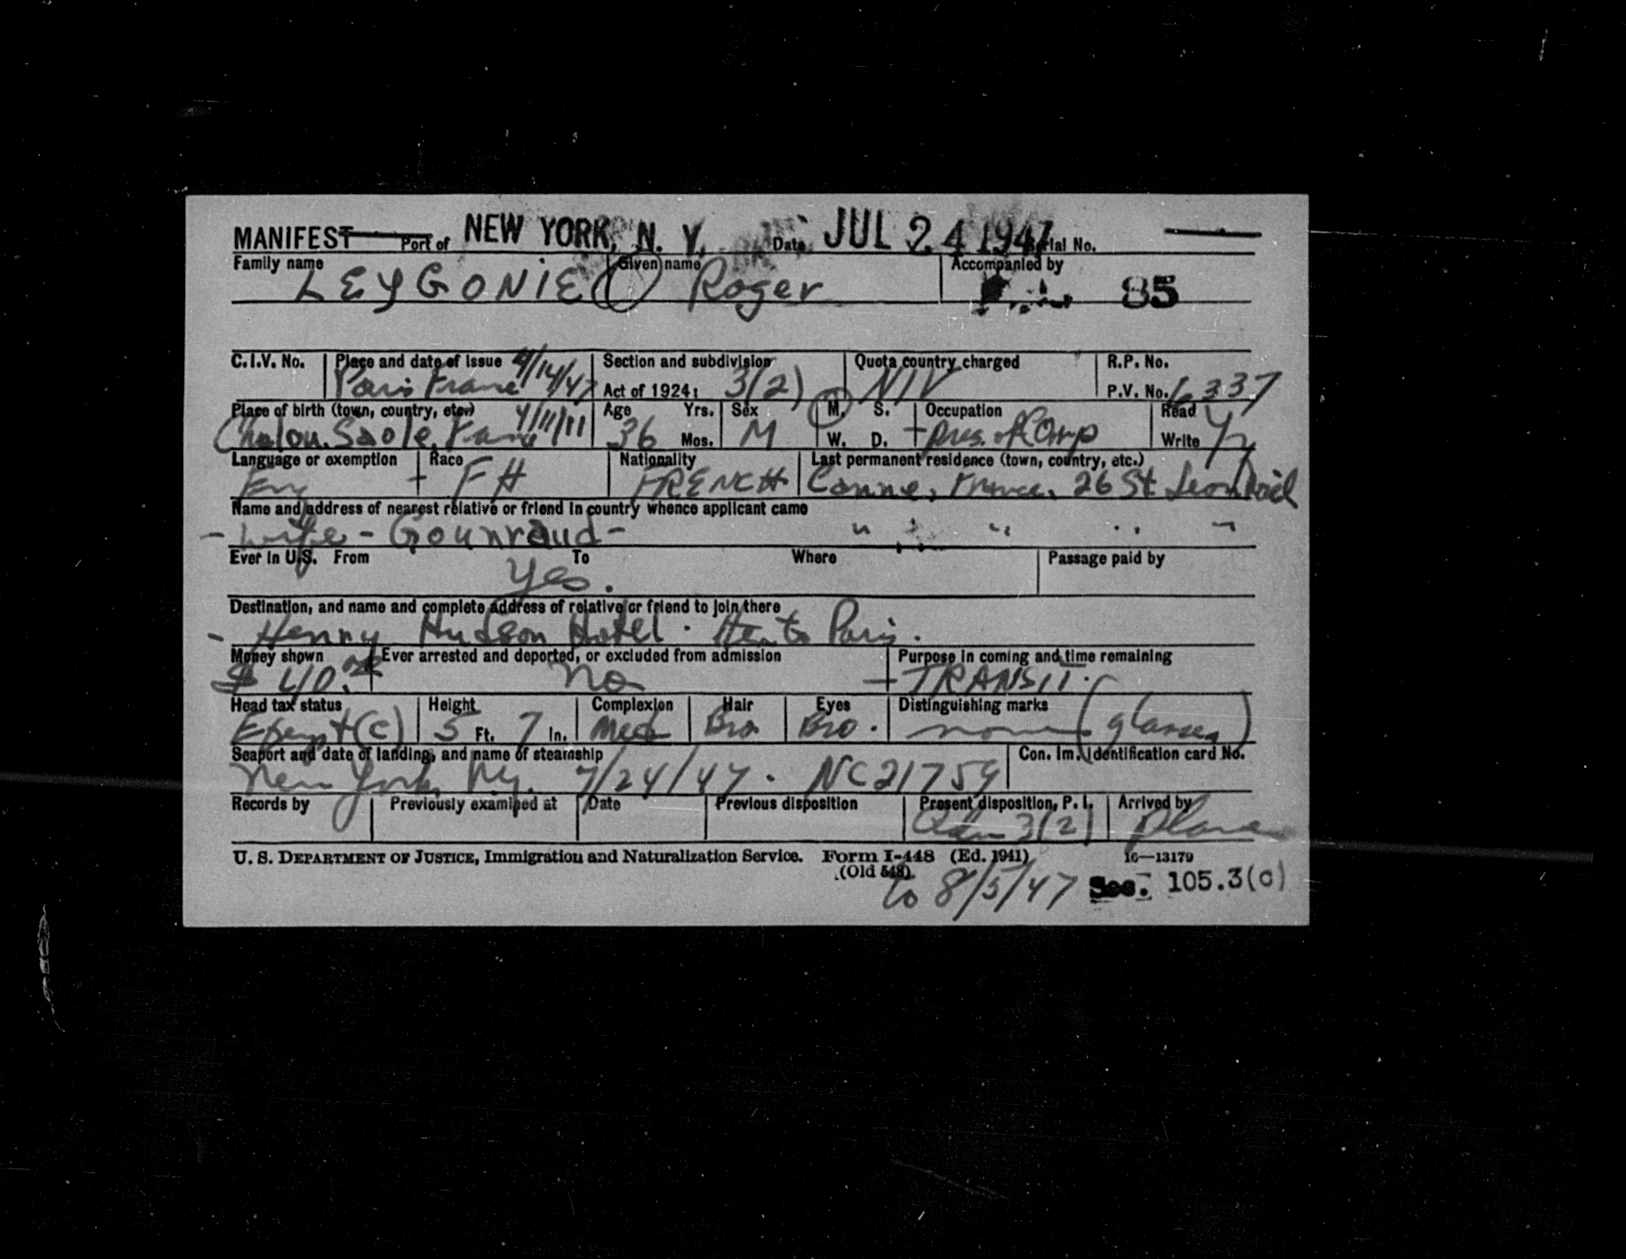 MANIFEST Port of NEW YORK, N. Y. Date JUL 24 1947 Serial No.
Family name Given name Accompanied by
LEYGONIE Roger 85
C.I.V. No. Place and date of issue 4/14/47 Section and subdivision Quota country charged R.P. No.
Paris France Act of 1924: 3(2) NIV P.V. No. 6337
Place of birth (town, country, etc.) 4/11/11 Age Yrs. Sex M. S. Occupation Read
36 Mos. M W. D. Pres. of Comp Write
Language or exemption Race Nationality Last permanent residence (town, country, etc.)
Eng FH FRENCH France, 26 St
Name and address of nearest relative or friend in country whence applicant came
- Wife - Gounraud - " " " " "
Ever in U.S. From To Where Passage paid by
Yes.
Destination, and name and complete address of relative or friend to join there
- Henry Hudson Hotel. to Paris.
Money shown Ever arrested and deported, or excluded from admission Purpose in coming and time remaining
$ 40. No TRANSIT.
Head tax status Height Complexion Hair Eyes Distinguishing marks
(C) 5 Ft. 7 In. Med Bro Bro. none (glasses)
Seaport and date of landing, and name of steamship Con. Im. Identification card No.
New York, Ny. 7/24/47. NC21759
Records by Previously examined at Date Previous disposition Present disposition, P. I. Arrived by
Adm 3(2) Plane
U. S. DEPARTMENT OF JUSTICE, Immigration and Naturalization Service. Form I-448 (Ed. 1941) 16—13179
(Old 548)
to 8/5/47 Sec. 105.3(c)